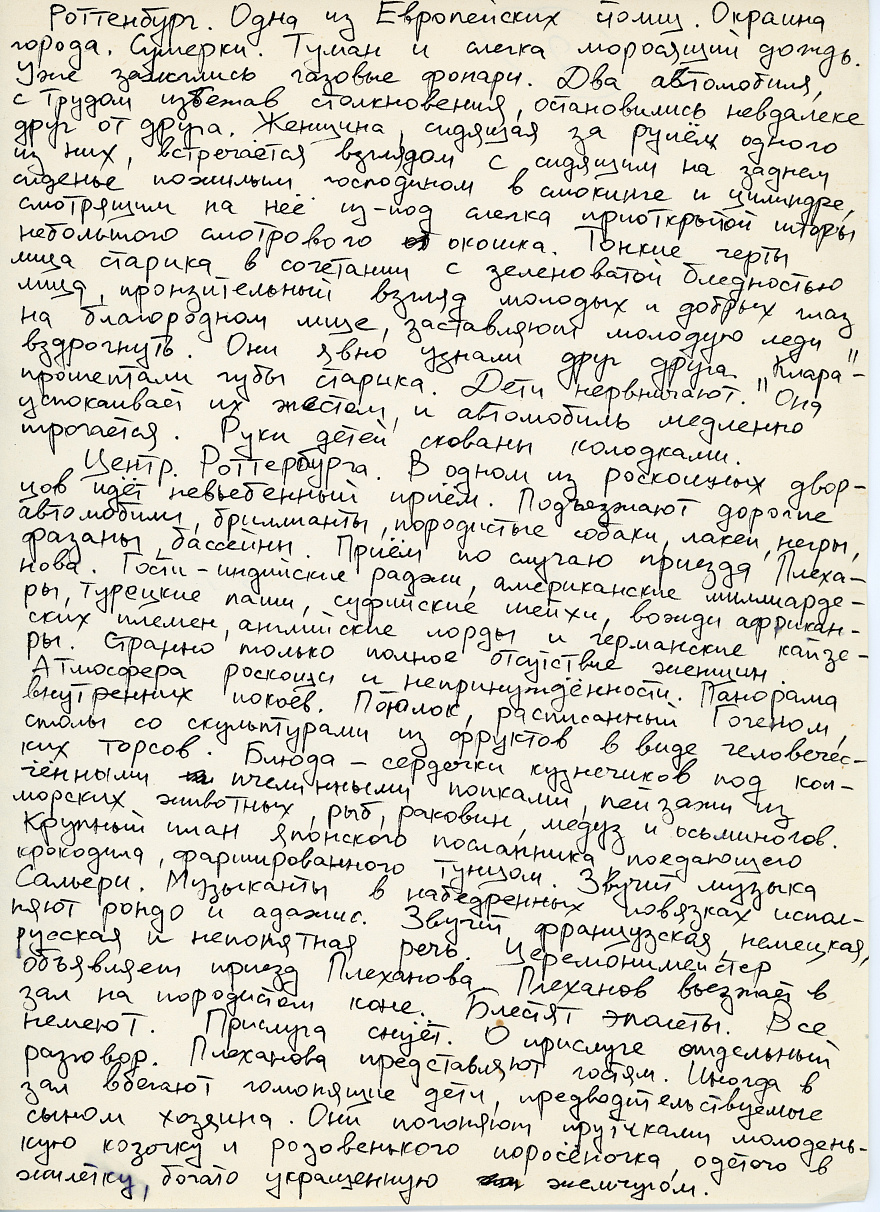 Роттенбург. Одна из Европейских столиц. Окраина
города. Сумерки. Туман и слегка моросящий дождь.
Уже зажглись газовые фонари. Два автомобиля,
с трудом избежав столкновения, остановились невдалеке
друг от друга. Женщина, сидящая за рулём одного
из них, встречается взглядом с сидящим на заднем
сиденье пожилым господином в смокинге и цилиндре,
смотрящим на неё из-под слегка приоткрытой шторы
небольшого смотрового окошка. Тонкие черты
лица старика в сочетании с зеленоватой бледностью
лица, пронзительный взгляд молодых и добрых глаз
на благородном лице, заставляют молодую леди
вздрогнуть. Они явно узнали друг друга. "Клара" -
прошептали губы старика. Дети нервничают. "Она
успокаивает их жестом, и автомобиль медленно
трогается. Руки детей скованы колодками.
Центр. Роттербурга. В одном из роскошных двор-
цов идёт невъебенный приём. Подъезжают дорогие
автомобили, бриллианты, породистые собаки, лакеи, негры,
фазаны, бассейны. Приём по случаю приезда Плеха-
нова. Гости - индийские раджи, американские миллиарде-
ры, турецкие паши, суфийские шейхи, вожди африкан-
ских племен, английские лорды и германские кайзе-
ры. Странно только полное отсутствие женщин.
Атмосфера роскоши и непринуждённости. Панорама
внутренних покоев. Потолок, расписанный Гогеном,
столы со скульптурами из фруктов в виде человечес-
ких торсов. Блюда - сердечки кузнечиков под коп-
чёнными пчелинными попками, пейзажи из
морских животных, рыб, раковин, медуз и осьминогов.
Крупный план японского посланника поедающего
крокодила, фаршированного тунцом. Звучит музыка
Сальери. Музыканты в набедренных повязках испол-
няют рондо и адажио. Звучит французская, немецкая,
русская и непонятная речь. Церемонимейстер
объявляет приезд Плеханова. Плеханов въезжает в
зал на породистом коне. Блестят эполеты. Все
немеют. Прислуга снуёт. О прислуге отдельный
разговор. Плеханова представляют гостям. Иногда в
зал вбегают гомонящие дети, предводительствуемые
сыном хозяина. Они погоняют прутиками молодень-
кую козочку и розовенького поросёночка, одетого в
жилетку, богато украшенную жемчугом.